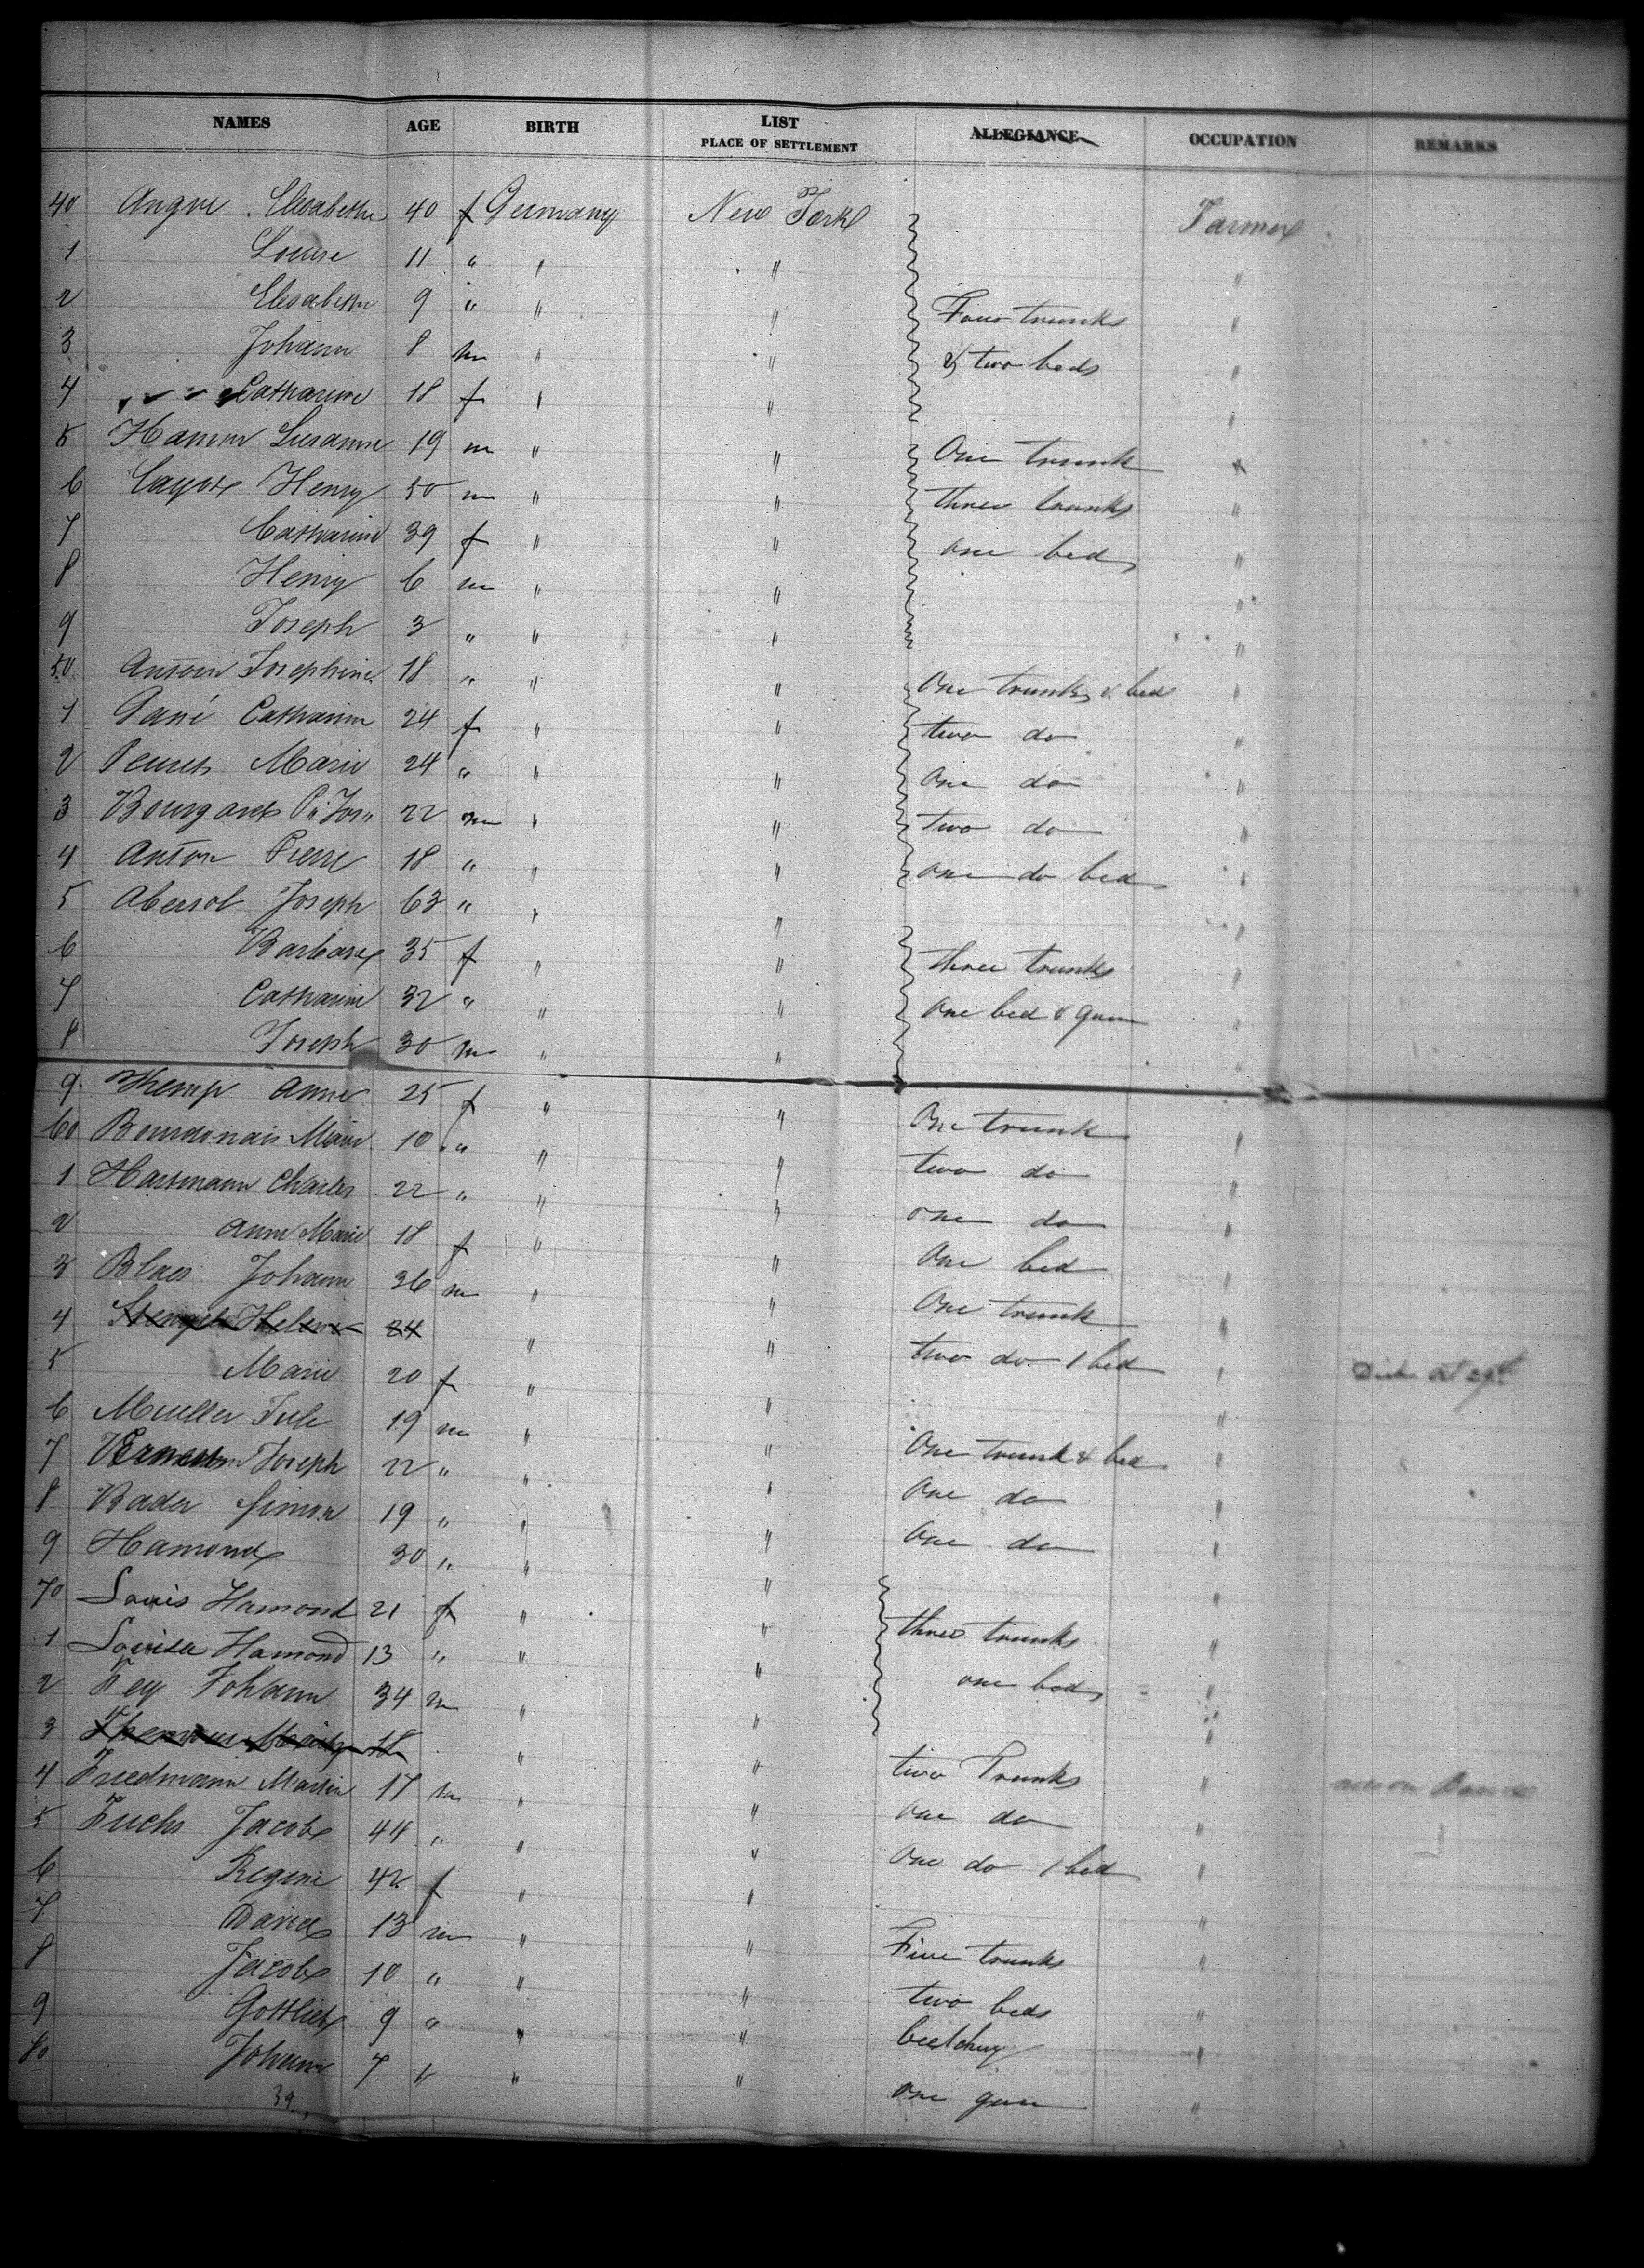 NAMES AGE BIRTH LIST PLACE OF SETTLEMENT ALLEGIANCE OCCUPATION REMARKS
40 Angne Elisabethe 40 f Germany New York Farmer
1 Louise 11 " " " "
2 Elisabethe 9 " " " Four trunks "
3 Johann 8 m " " & two beds "
4 Catharine 18 f " " "
5 Hamm Susanne 19 m " " One trunk "
6 Henry 50 m " " three trunks "
7 Catharine 39 f " " one bed "
8 Henry 6 m " " "
9 Joseph 3 " " " "
50 Antoin Josephine 18 " " " One trunk & bed "
1 Catharine 24 f " " two do "
2 Marie 24 " " " One do "
3 Bourgard 22 m " " two do "
4 Anton Pierre 18 " " " one do bed "
5 Abersol Joseph 63 " " " "
6 Barbara 35 f " " three trunks "
7 Catharine 32 " " " One bed & gun "
8 Joseph 30 m " " "
9 Kemp Anne 25 f " " One trunk "
60 Bourdonais Marie 10 " " " two do "
1 Hartmann Charles 22 " " " one do "
2 Anne Marie 18 f " " One bed "
3 Blaes Johann 36 m " " One trunk "
4 Stengel Helene 24 " " two do 1 bed "
5 Marie 20 f " " "
6 Mueller 19 m " " One trunk & bed "
7 Joseph 22 " " " One do "
8 Bader Simon 19 " " " One do "
9 Hamond 30 " " " "
70 Louis Hamond 21 f " " three trunks "
1 Louisa Hamond 13 " " " one bed "
2 Johann 34 m " " "
3 18 " " two Trunks "
4 Friedmann Martin 17 m " " one do "
5 Fuchs Jacob 44 " " " One do 1 bed "
6 Regine 42 f " " "
7 David 13 m " " Five trunks "
8 Jacob 10 " " " two beds "
9 Gottlieb 9 " " " "
80 Johann 7 " " " one gun "
39